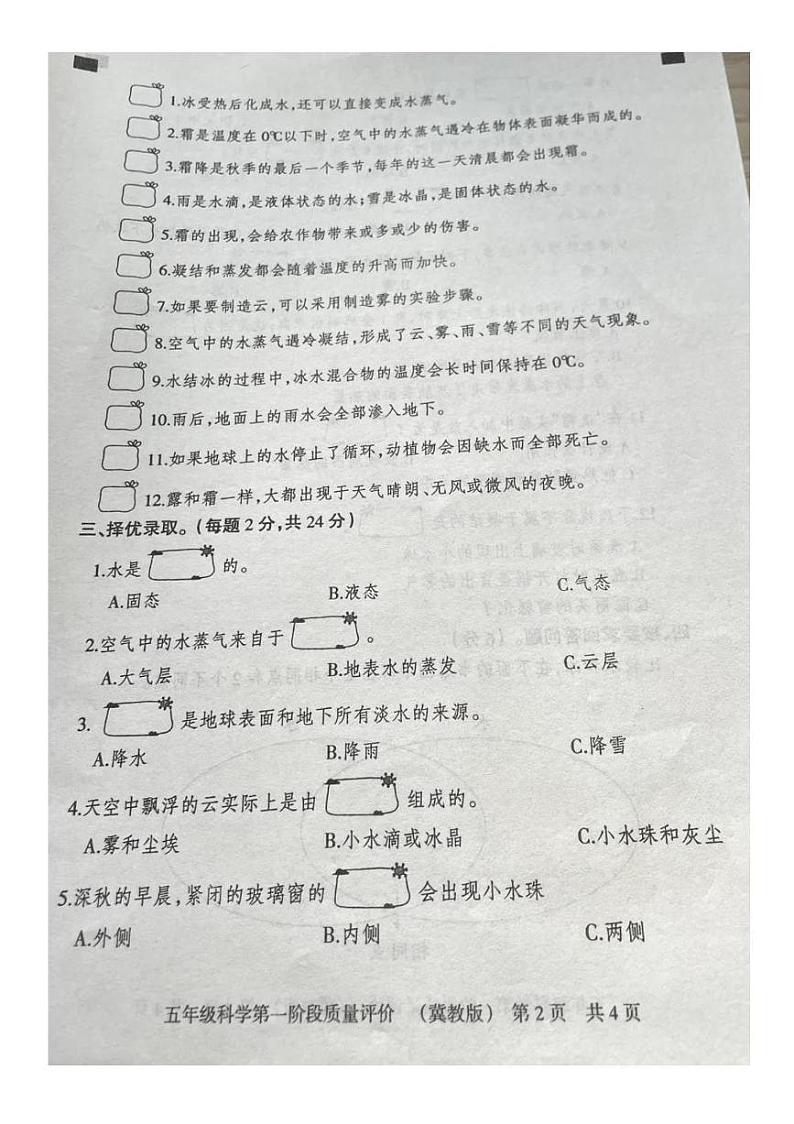 1.冰受热后化成水,还可以直接变成水蒸气。
2.霜是温度在0℃以下时,空气中的水蒸气遇冷在物体表面凝华而成的。
3.霜降是秋季的最后一个季节,每年的这一天清晨都会出现霜。
4.雨是水滴,是液体状态的水;雪是冰晶,是固体状态的水。
5.霜的出现,会给农作物带来或多或少的伤害。
6.凝结和蒸发都会随着温度的升高而加快。
7.如果要制造云,可以采用制造雾的实验步骤。
8.空气中的水蒸气遇冷凝结,形成了云、雾、雨、雪等不同的天气现象。
9.水结冰的过程中,冰水混合物的温度会长时间保持在0℃。
10.雨后,地面上的雨水会全部渗入地下。
11.如果地球上的水停止了循环,动植物会因缺水而全部死亡。
12.露和霜一样,大都出现于天气晴朗、无风或微风的夜晚。
三、择优录取。(每题2分,共24分)
1.水是 的。
A.固态 B.液态 C.气态
2.空气中的水蒸气来自于 。
A.大气层 B.地表水的蒸发 C.云层
3. 是地球表面和地下所有淡水的来源。
A.降水 B.降雨 C.降雪
4.天空中飘浮的云实际上是由 组成的。
A.雾和尘埃 B.小水滴或冰晶 C.小水珠和灰尘
5.深秋的早晨,紧闭的玻璃窗的 会出现小水珠
A.外侧 B.内侧 C.两侧
五年级科学第一阶段质量评价 (冀教版) 第2页 共4页